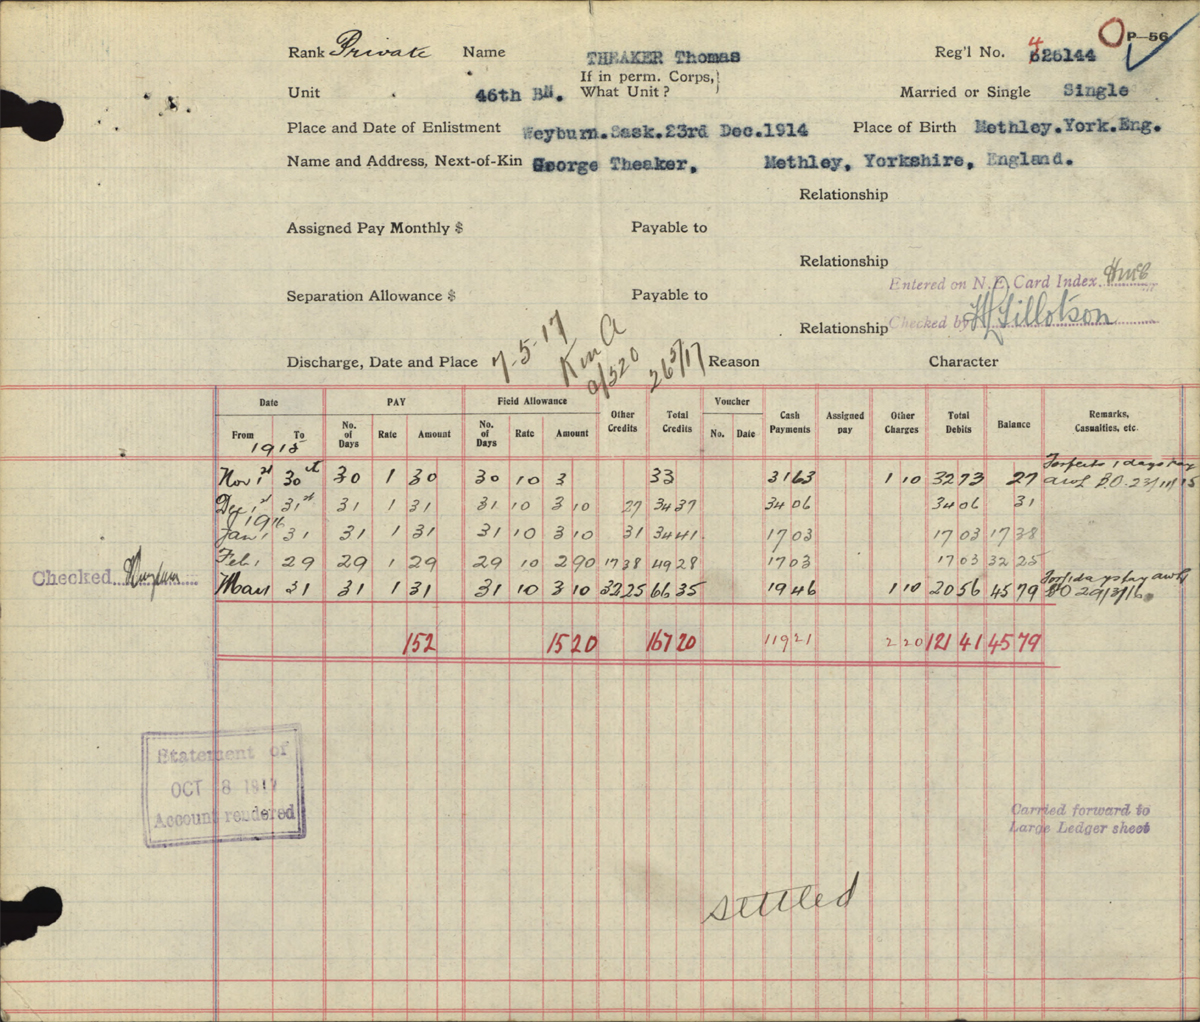 P-56
Rank Private Name THEAKER Thomas Reg'l No. 426144
If in perm. Corps,
Unit 46th Bn. What Unit? Married or Single Single
Place and Date of Enlistment Weyburn.Sask.23rd Dec.1914 Place of Birth Methley.York.Eng.
Name and Address, Next-of-Kin George Theaker, Methley, Yorkshire, England.
Relationship
Assigned Pay Monthly $ Payable to
Relationship
Entered on N.E. Card Index
Separation Allowance $ Payable to
Checked by H Tillotson
Relationship
Discharge, Date and Place 7-5-17 K in A 9/520 26/5/17 Reason Character
Date PAY Field Allowance Other Credits Total Credits Voucher Cash Payments Assigned pay Other Charges Total Debits Balance Remarks, Casualties, etc.
From To No. of Days Rate Amount No. of Days Rate Amount No. Date
1915
Nov 1st 30th 30 1 30 30 10 3 33 31 63 1 10 32 73 27 Forfeits 1 days pay
awl BO. 23/11/15
Dec 1st 31st 31 1 31 31 10 3 10 27 34 37 34 06 34 06 31
1916
Jan 1 31 31 1 31 31 10 3 10 31 34 41 17 03 17 03 17 38
Feb 1 29 29 1 29 29 10 2 90 17 38 49 28 17 03 17 03 32 25
Checked
Mar 1 31 31 1 31 31 10 3 10 32 25 66 35 19 46 1 10 20 56 45 79 Forf 1 days pay awl
BO 29/3/16
152 15 20 167 20 119 21 2 20 121 41 45 79
Statement of
OCT 8 1917
Account rendered
Carried forward to
Large Ledger sheet
settled